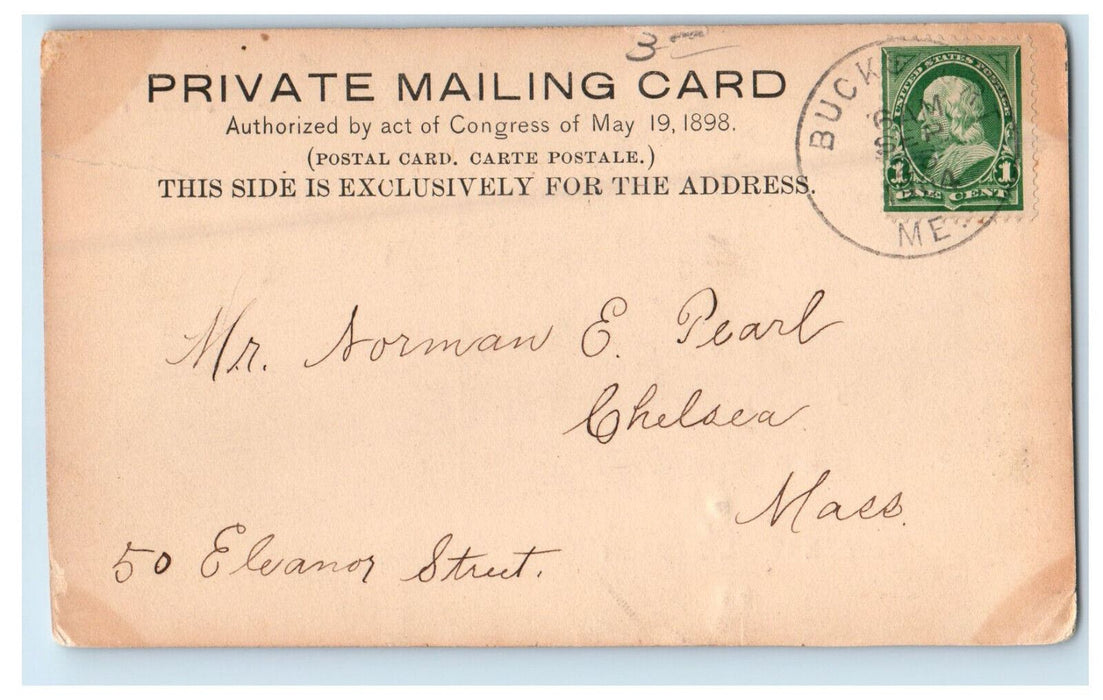 3-
PRIVATE MAILING CARD
Authorized by act of Congress of May 19, 1898.
(POSTAL CARD. CARTE POSTALE.)
THIS SIDE IS EXCLUSIVELY FOR THE ADDRESS.
BUCK
ME.
UNITED STATES POSTAGE
1 ONE CENT 1
Mr. Norman E. Pearl
Chelsea
Mass.
50 Eleanor Street.